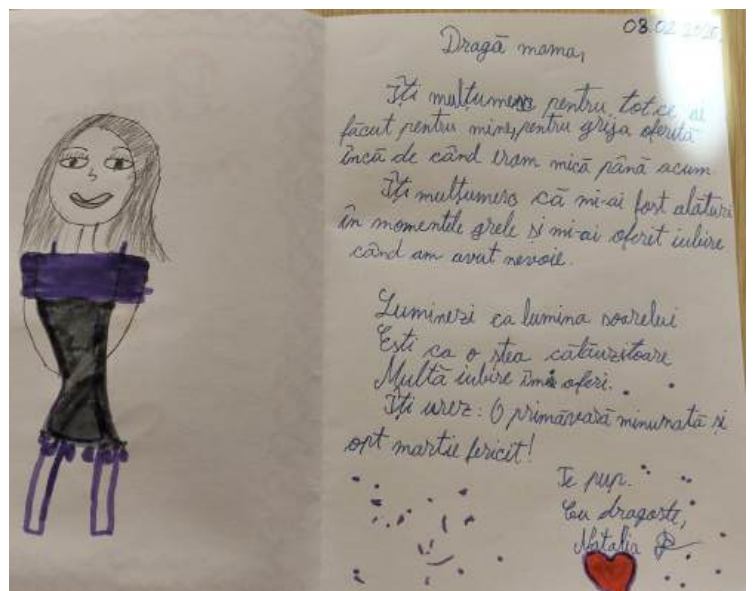 08.02.2020
Dragă mama,
Îți mulțumesc pentru tot ce ai
făcut pentru mine, pentru grija oferită
încă de când eram mică până acum.
Îți mulțumesc că mi-ai fost alături
în momentele grele și mi-ai oferit iubire
când am avut nevoie.
Luminezi ca lumina soarelui
Ești ca o stea călăuzitoare
Multă iubire îmi oferi.
Îți urez: O primăvară minunată și
opt martie fericit!
Te pup.
Cu dragoste,
Natalia